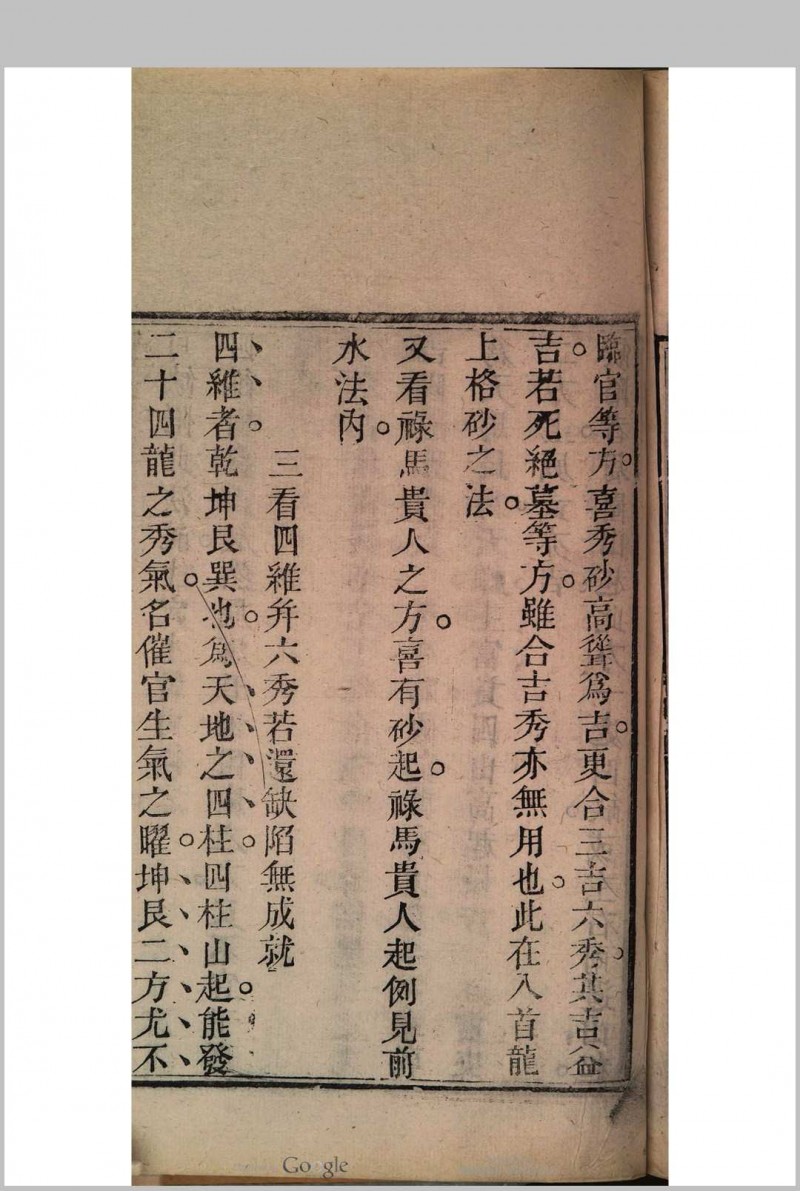 臨官等方喜秀砂高聳爲吉更合三吉六秀其吉益
吉若死絕墓等方雖合吉秀亦無用也此在入首龍
上格砂之法
又看祿馬貴人之方喜有砂起祿馬貴人起例見前
水法內
三看四維并六秀若還缺陷無成就
四維者乾坤艮巽也爲天地之四柱四柱山起能發
二十四龍之秀氣名催官生氣之曜坤艮二方尤不
Google